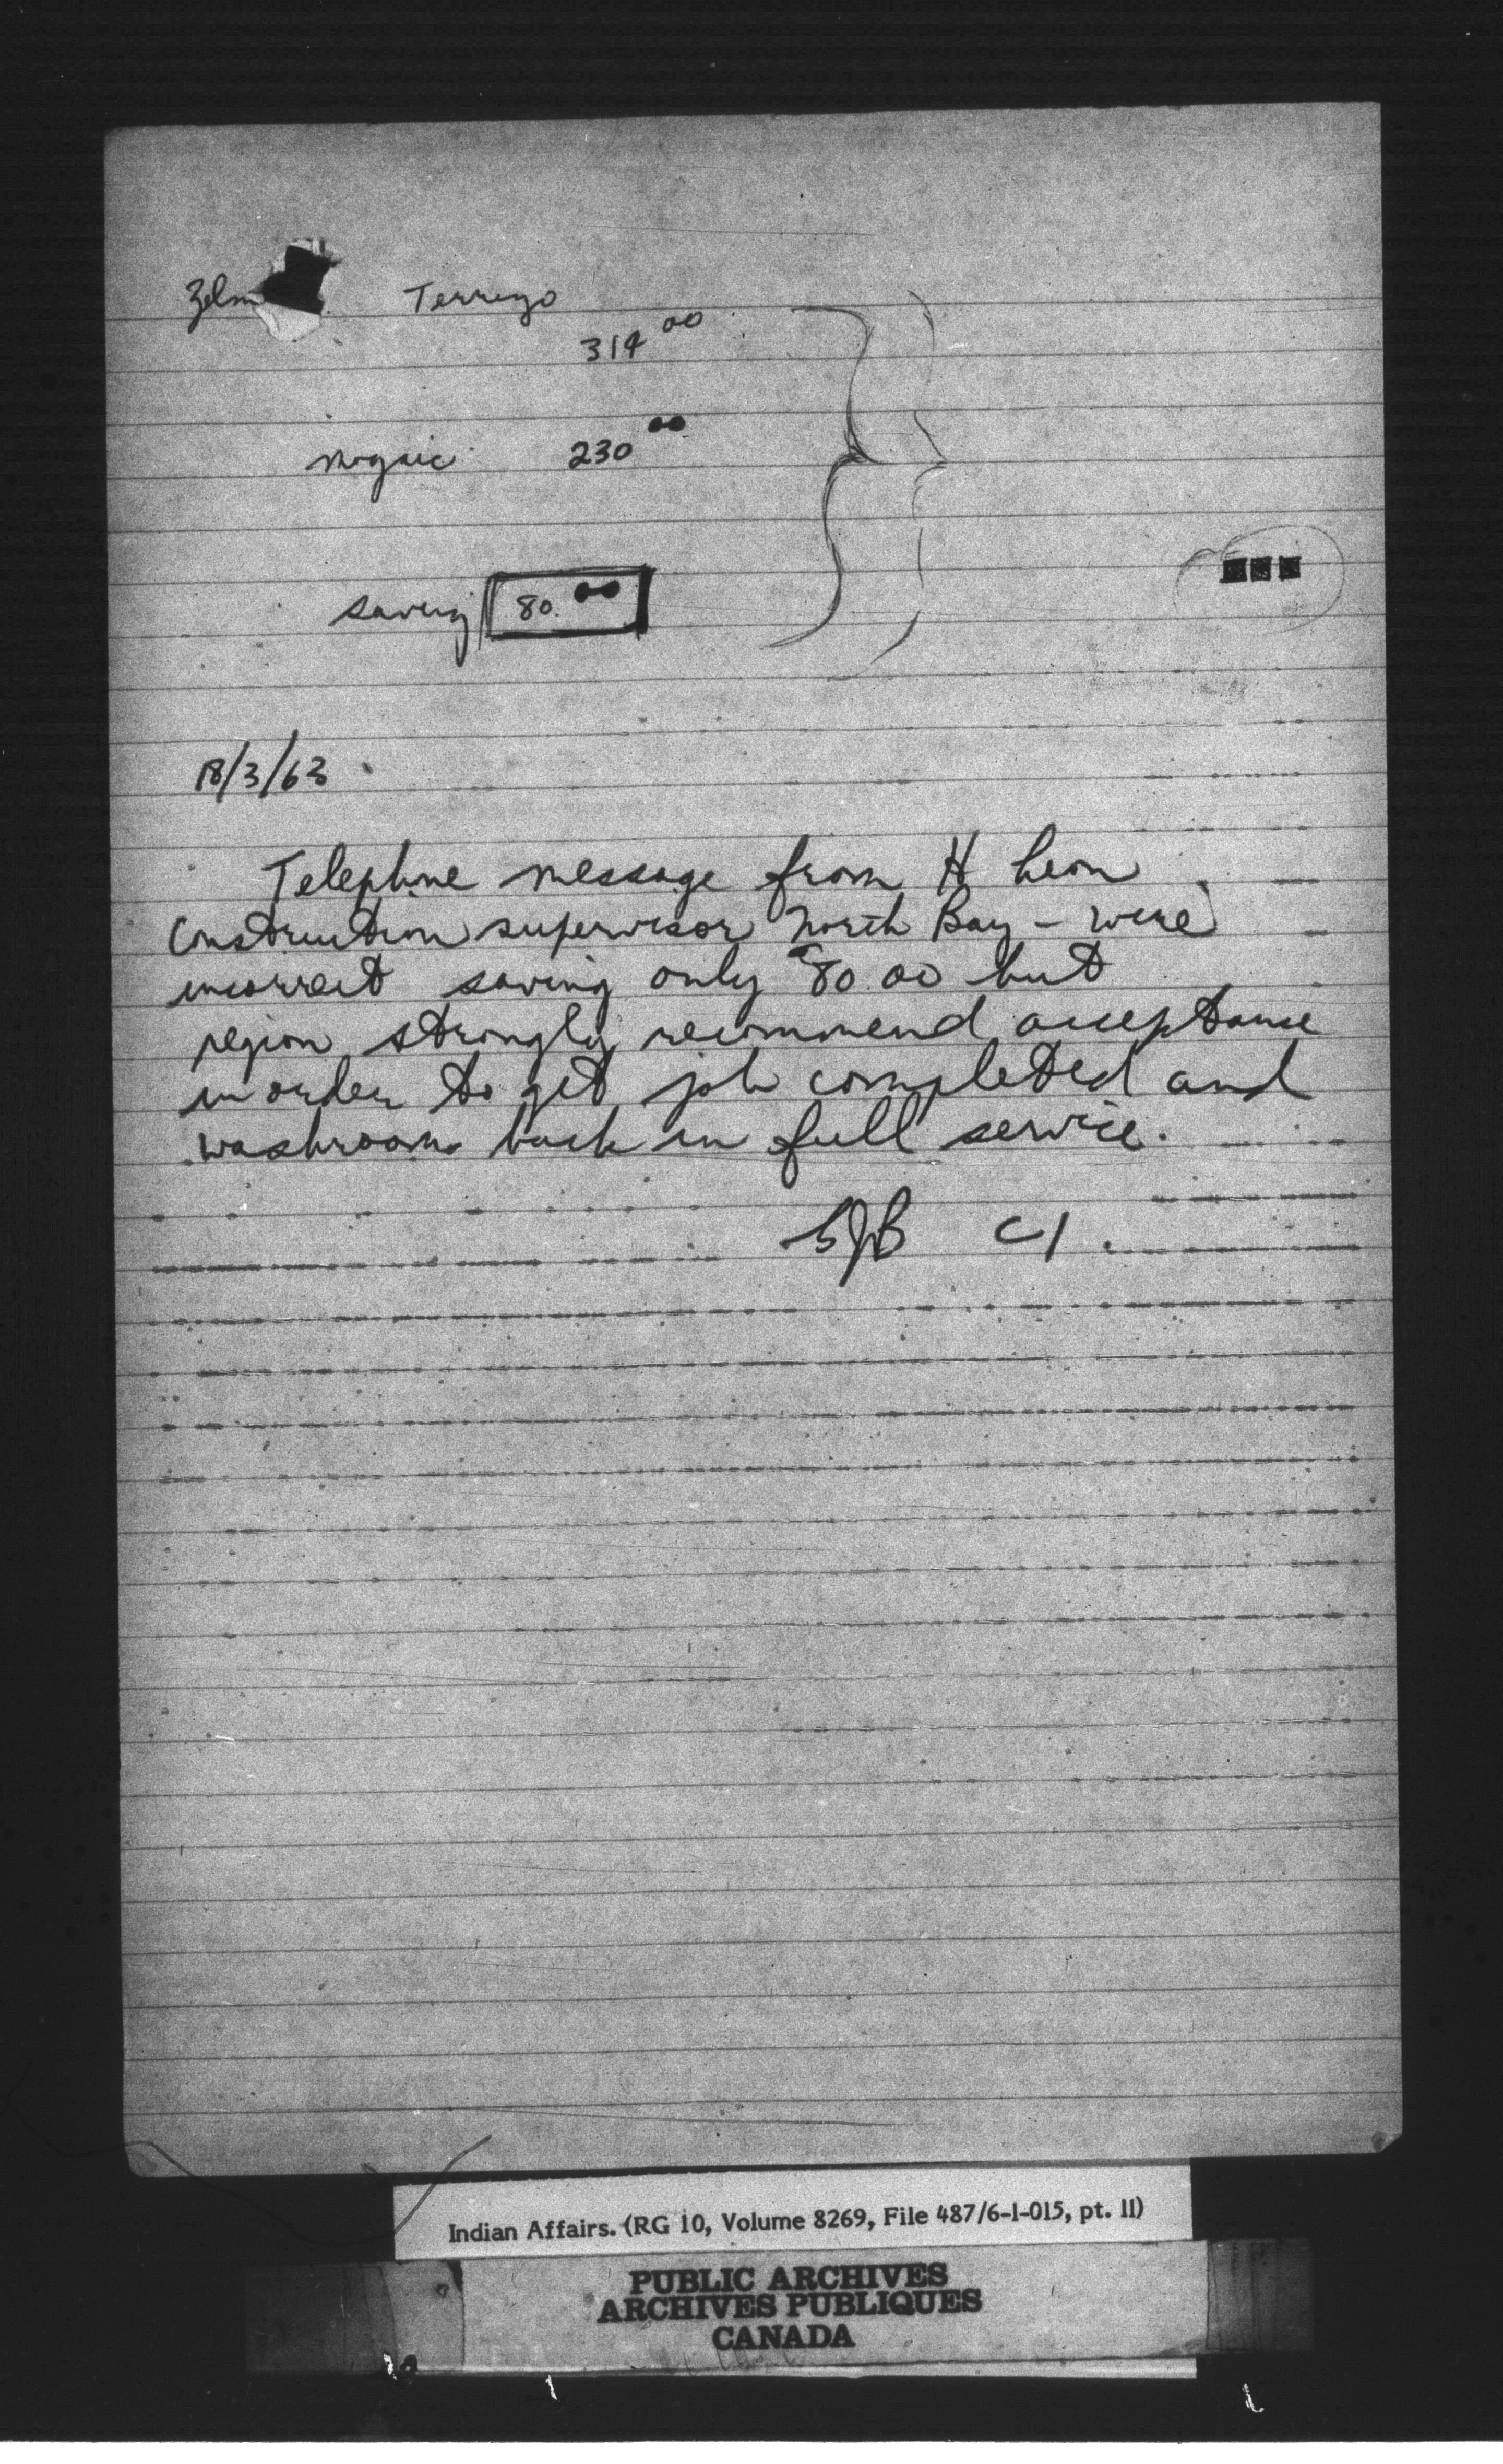 Zelm Terrazo
314 00
Mosaic 230 00
saving 80. 00
18/3/63
Telephone message from H Leon
Construction supervisor North Bay - wire
incorrect saving only 80.00 but
region strongly recommend acceptance
in order to get job completed and
washrooms back in full service.
SJB C1.
Indian Affairs. (RG 10, Volume 8269, File 487/6-1-015, pt. 11)
PUBLIC ARCHIVES
ARCHIVES PUBLIQUES
CANADA